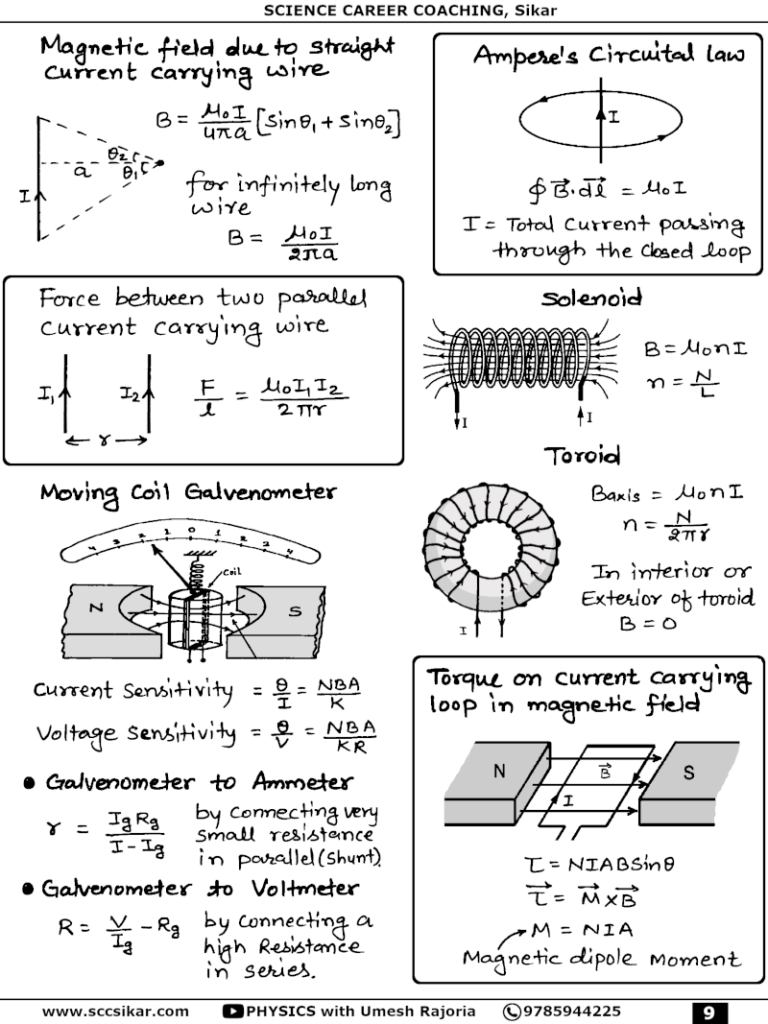 SCIENCE CAREER COACHING, Sikar
Magnetic field due to straight
current carrying wire
B = μ₀I/4πa [sinθ₁ + sinθ₂]
θ₂
a
θ₁
I
for infinitely long
wire
B = μ₀I/2πa
Ampere's Circuital law
I
∮B⃗.d⃗l = μ₀I
I = Total Current passing
through the closed loop
Force between two parallel
current carrying wire
I₁
I₂
F/l = μ₀I₁I₂/2πr
r
Solenoid
B = μ₀nI
n = N/L
I
I
Toroid
Baxis = μ₀nI
n = N/2πr
In interior or
Exterior of toroid
B = 0
I
Moving Coil Galvenometer
4 3 2 1 0 1 2 3 4
coil
N
S
Current Sensitivity = θ/I = NBA/K
Voltage Sensitivity = θ/V = NBA/KR
• Galvenometer to Ammeter
r = IgRg/I-Ig
by connecting very
small resistance
in parallel (shunt).
• Galvenometer to Voltmeter
R = V/Ig - Rg
by connecting a
high Resistance
in series.
Torque on current carrying
loop in magnetic field
N
B⃗
S
I
τ = NIABSinθ
τ⃗ = M⃗×B⃗
M = NIA
Magnetic dipole Moment
www.sccsikar.com PHYSICS with Umesh Rajoria 9785944225 9